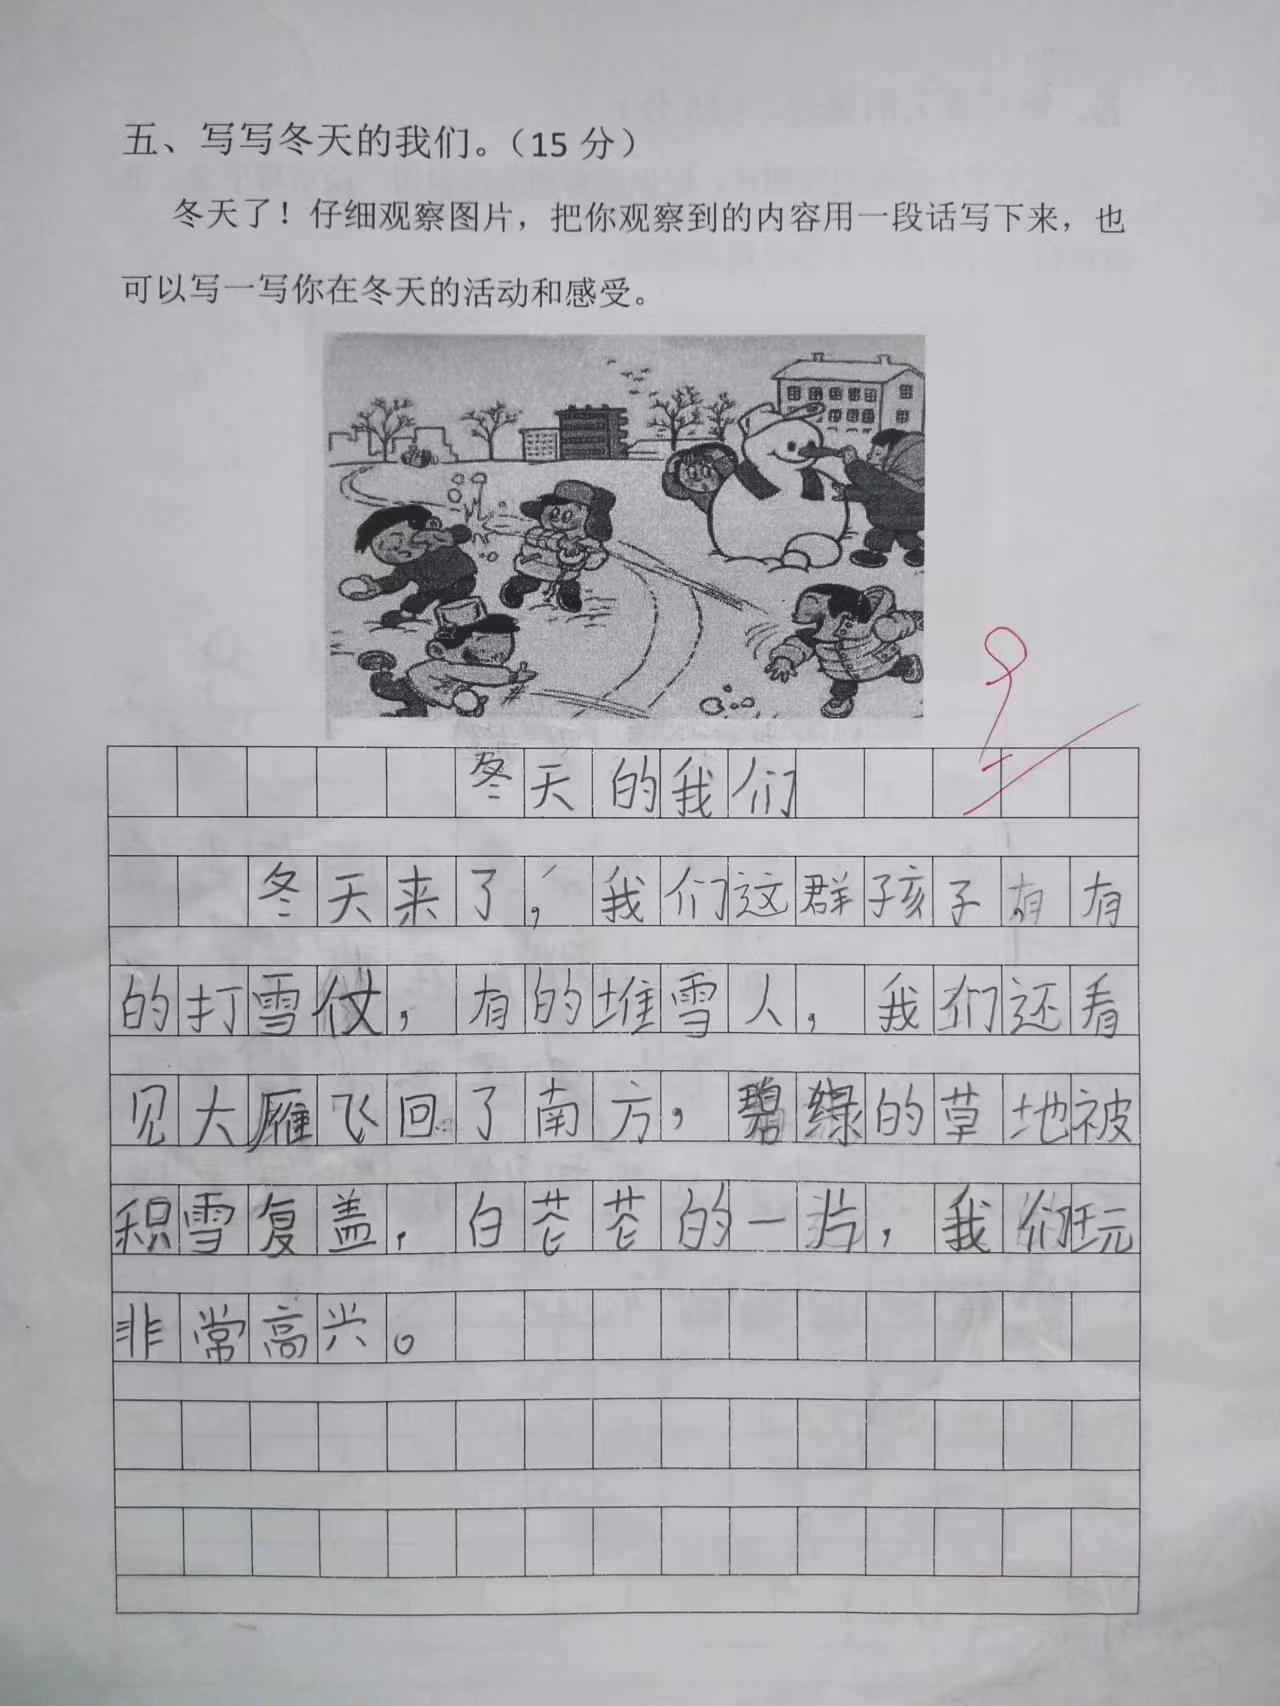 五、写写冬天的我们。（15 分）
冬天了！仔细观察图片，把你观察到的内容用一段话写下来，也
可以写一写你在冬天的活动和感受。
冬天的我们
冬天来了，我们这群孩子有有
的打雪仗，有的堆雪人，我们还看
见大雁飞回了南方，碧绿的草地被
积雪复盖，白芒芒的一片，我们玩
非常高兴。